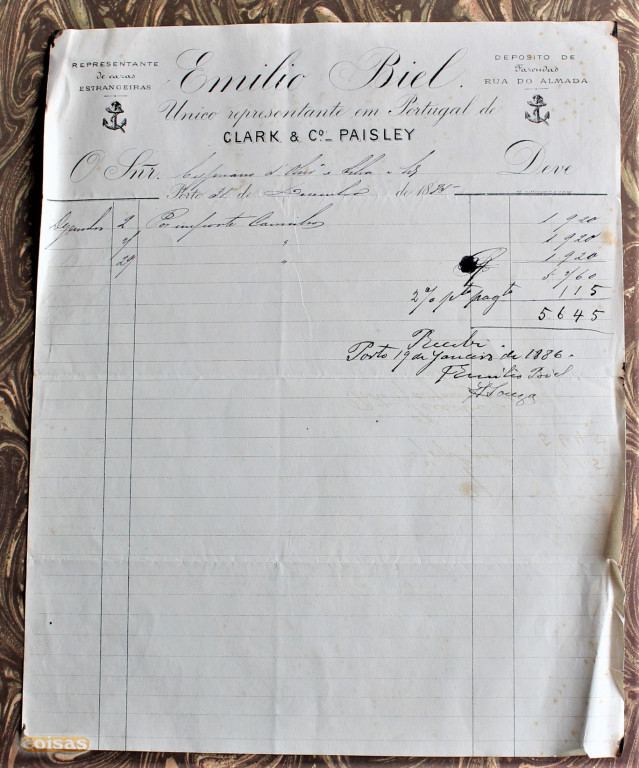 REPRESENTANTE
de cazas
ESTRANGEIRAS
Emilio Biel.
DEPOSITO DE
Fazendas
RUA DO ALMADA
Unico representante em Portugal de
CLARK & Cº_ PAISLEY
O Snr.
Deve
Porto 31 de Dezembro de 1885
Dezembro 2 Por importe Carrinhos 1 920
" 1 920
29 " 1 920
5 760
2% pto pagto 115
5 645
Recebi.
Porto 19 de Janeiro de 1886.
Emilio Biel
coisas